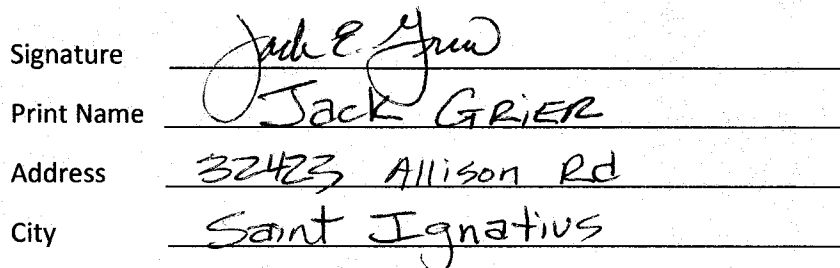 Signature Jack E. Grier
Print Name Jack GRiER
Address 32423 Allison Rd
City Saint Ignatius